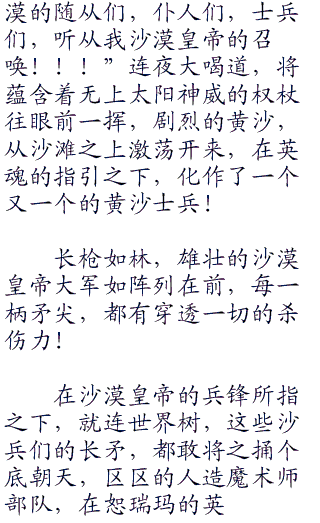 漠的随从们，仆人们，士兵
们，听从我沙漠皇帝的召
唤！！！”连夜大喝道，将
蕴含着无上太阳神威的权杖
往眼前一挥，剧烈的黄沙，
从沙滩之上激荡开来，在英
魂的指引之下，化作了一个
又一个的黄沙士兵！
长枪如林，雄壮的沙漠
皇帝大军如阵列在前，每一
柄矛尖，都有穿透一切的杀
伤力！
在沙漠皇帝的兵锋所指
之下，就连世界树，这些沙
兵们的长矛，都敢将之捅个
底朝天，区区的人造魔术师
部队，在恕瑞玛的英